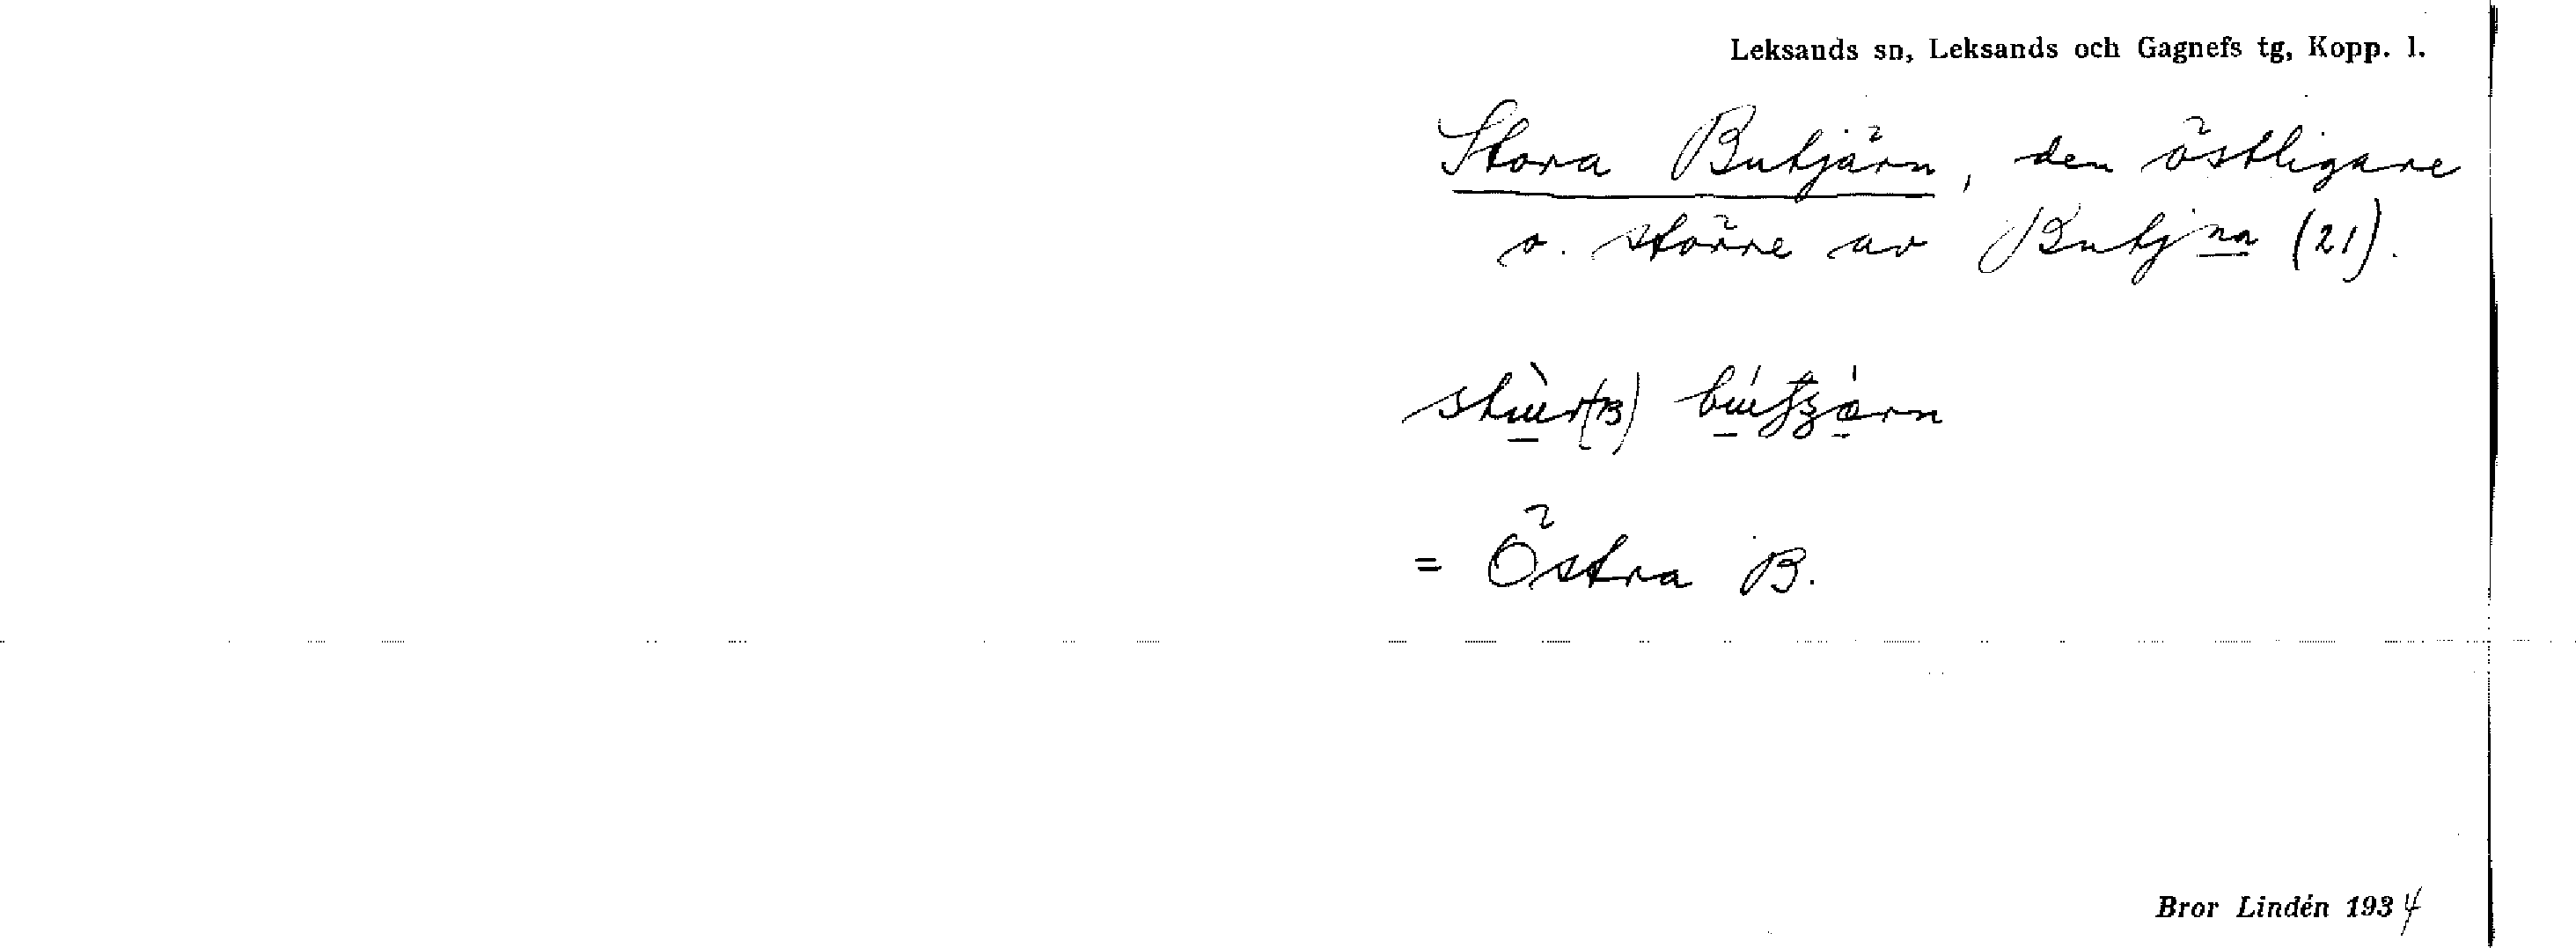 Leksands sn, Leksands och Gagnefs tg, Kopp. l.
Stora Butjärn, den östligare
o. större av Butjna (21).
= Östra B.
Bror Lindén 1934